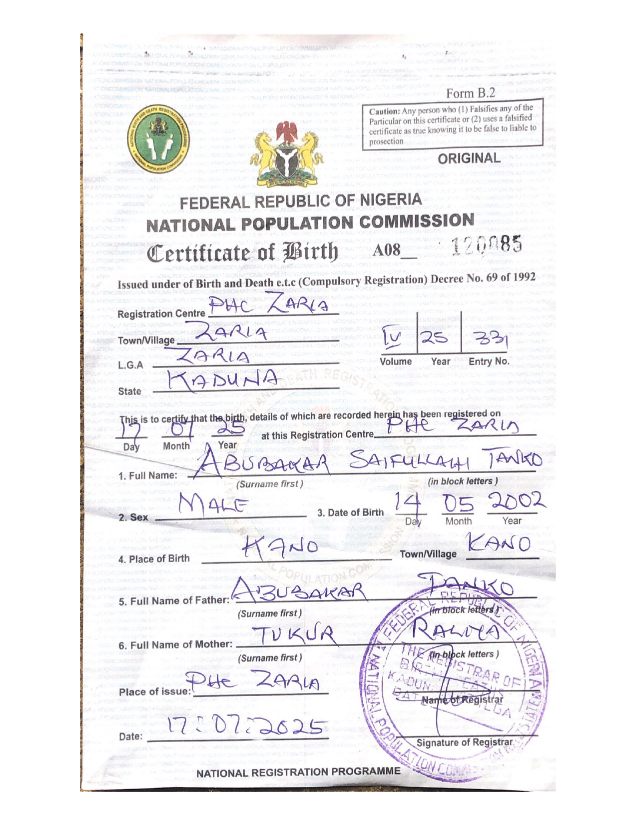 Form B.2
Caution: Any person who (1) Falsifies any of the
Particular on this certificate or (2) uses a falsified
certificate as true knowing it to be false to liable to
prosection
ORIGINAL
FEDERAL REPUBLIC OF NIGERIA
NATIONAL POPULATION COMMISSION
Certificate of Birth A08 120085
Issued under of Birth and Death e.t.c (Compulsory Registration) Decree No. 69 of 1992
Registration Centre PHC ZARIA
Town/Village ZARIA
L.G.A ZARIA
State KADUNA
IV 25 331
Volume Year Entry No.
This is to certify that the birth, details of which are recorded herein has been registered on
17 07 25 at this Registration Centre PHC ZARIA
Day Month Year
1. Full Name: ABUBAKAR SAIFULLAHI TANKO
(Surname first) (in block letters)
2. Sex MALE 3. Date of Birth 14 05 2002
Day Month Year
4. Place of Birth KANO Town/Village KANO
5. Full Name of Father: ABUBAKAR TANKO
(Surname first) (in block letters)
6. Full Name of Mother: TUKUR RALIYA
(Surname first) (in block letters)
Place of issue: PHC ZARIA
Name of Registrar
Date: 17:07:2025
Signature of Registrar
NATIONAL REGISTRATION PROGRAMME